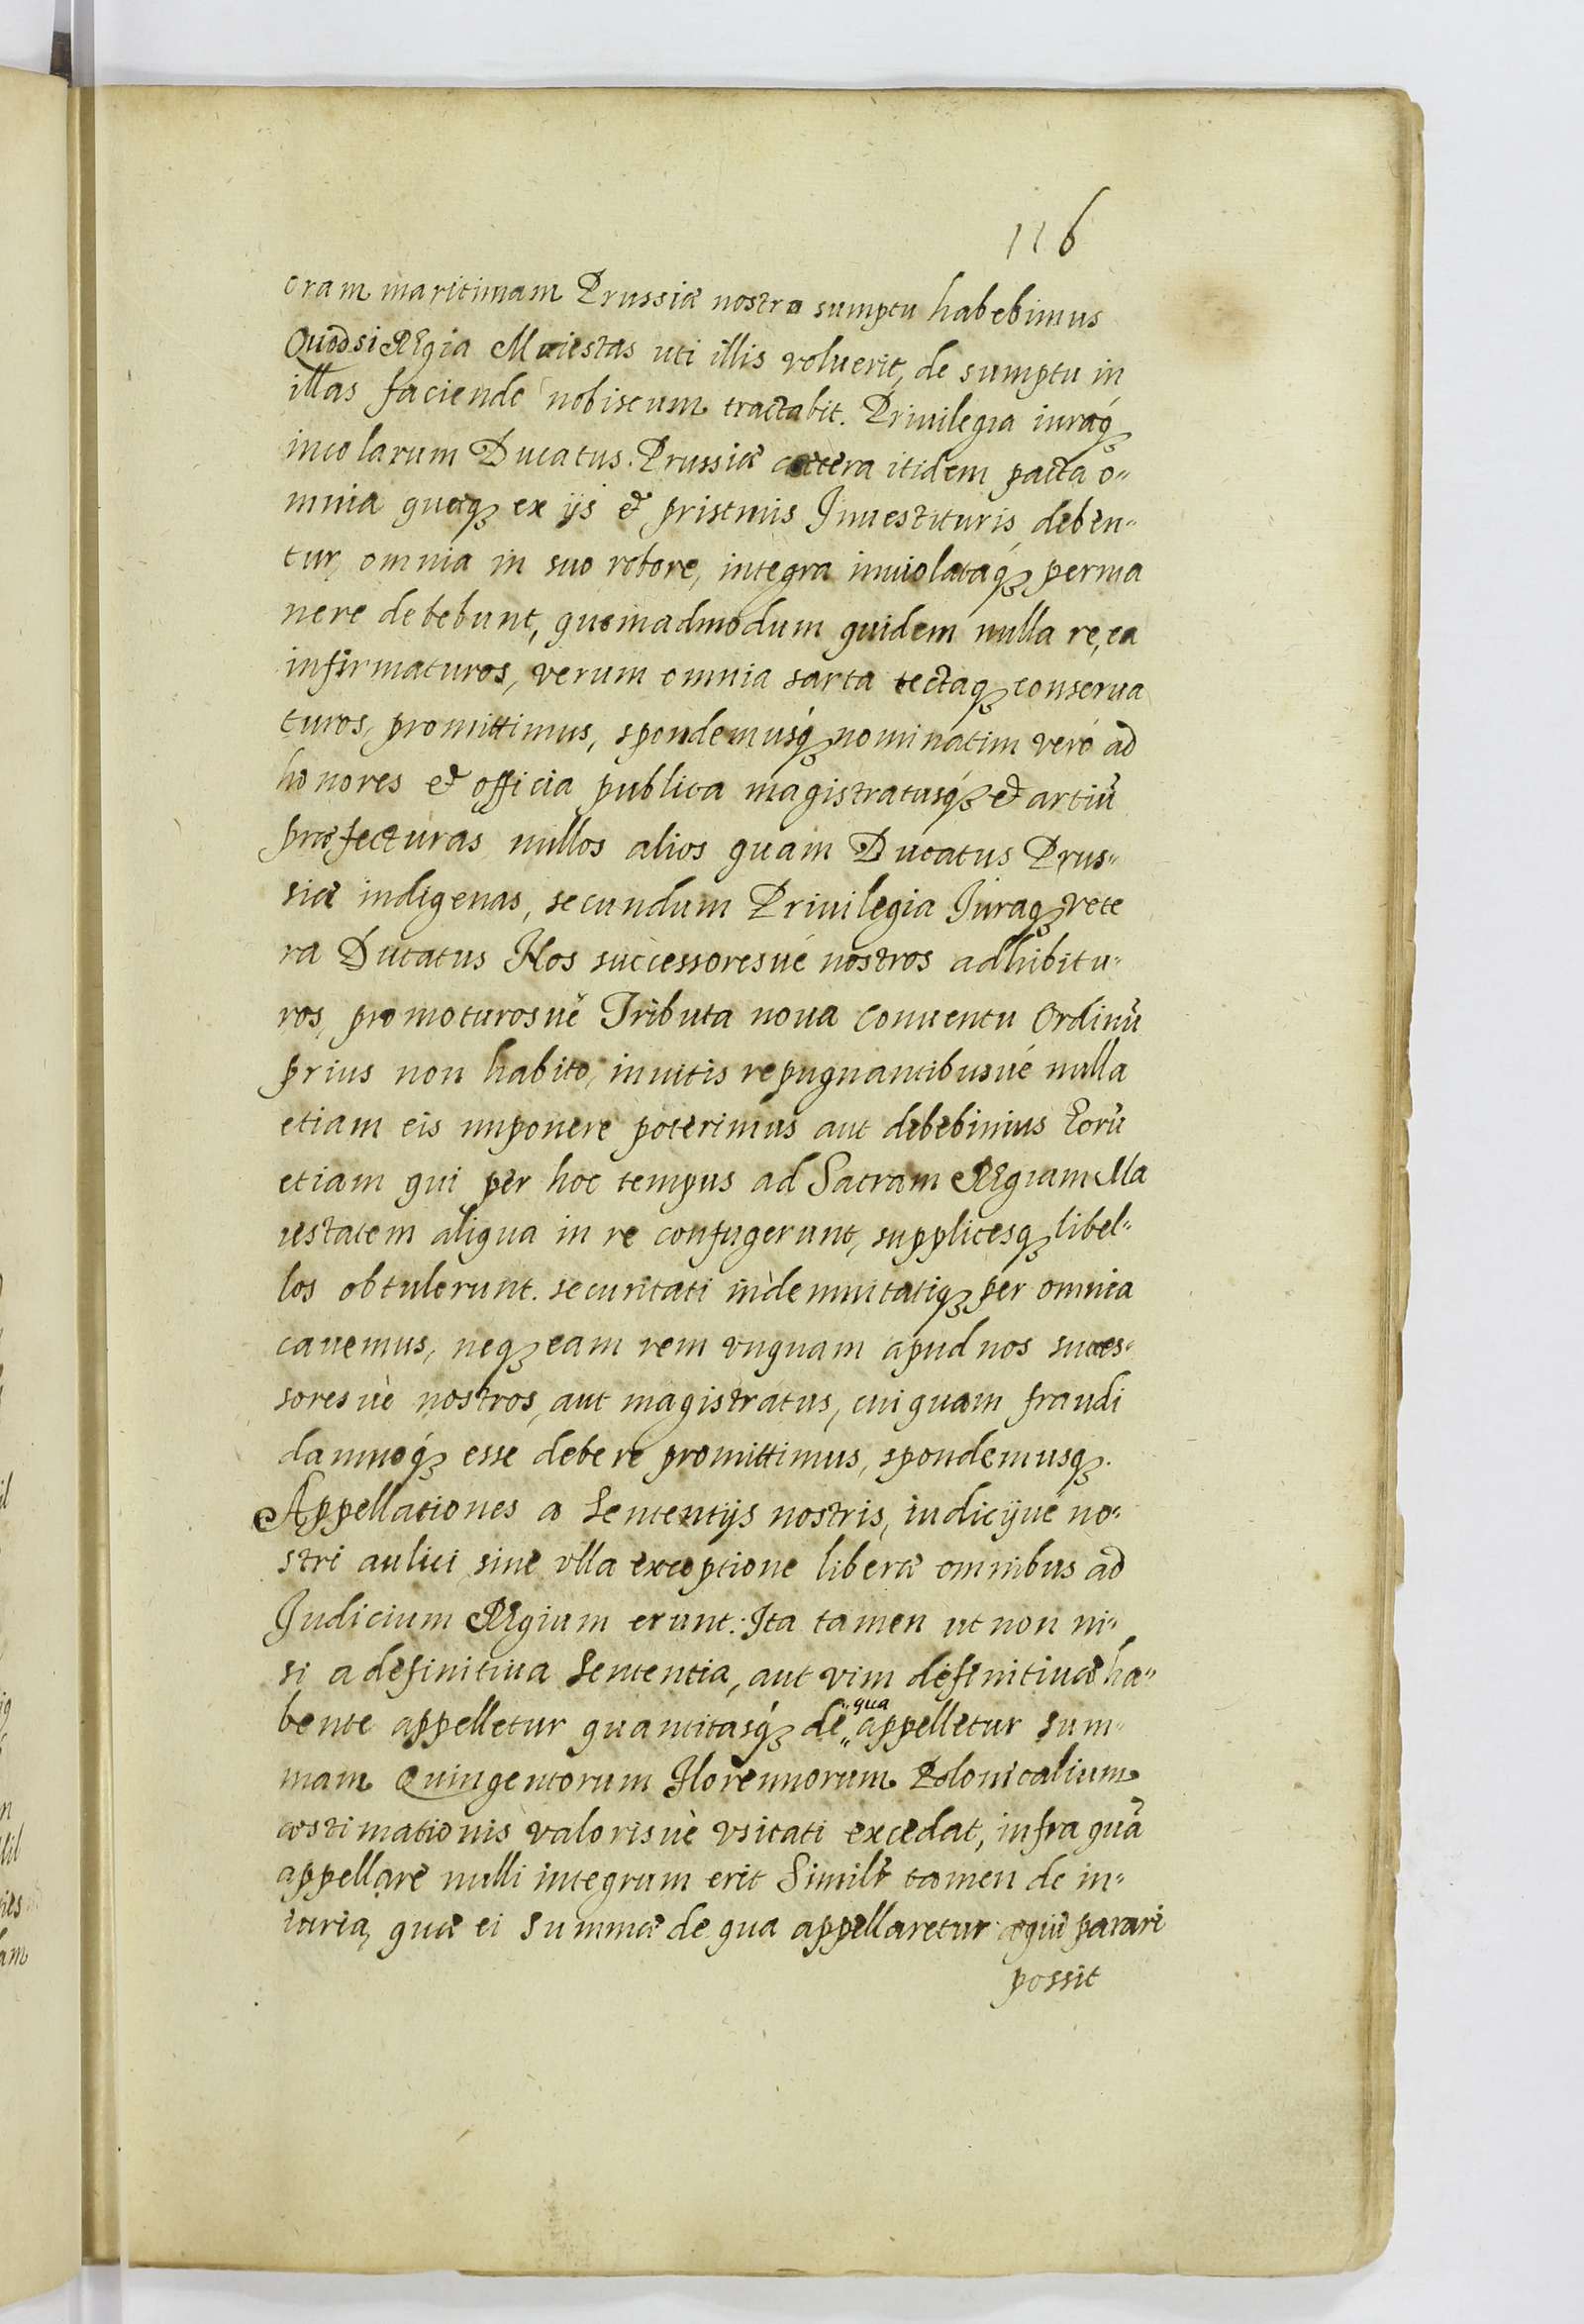 116
oram maritimam Prussiæ nostro sumptu habebimus
Quodsi Regia Maiestas uti illis voluerit, de sumptu in
illas faciendo nobiscum tractabit. Priuilegia iuraq́ꝫ
incolarum Ducatus Prussiæ cætera itidem pacta o„
mnia quæqꝫ ex ijs et pristinis Inuestituris deben„
tur, omnia in suo robore, integra inuiolataq́ꝫ perma
nere debebunt, quemadmodum quidem nulla re, ea
infirmaturos, verum omnia sarta tectaqꝫ conserua
turos, promittimus, spondemusq́ꝫ nominatim verò ad
honores et officia publica magistratusq́ꝫ et artiū
præfecturas nullos alios quam Ducatus Prus„
siæ indigenas, secundum Priuilegia Iuraqꝫ vete
ra Ducatus Nos successoresué nostros adhibitu„
ros, promoturosuè Tributa noua Conuentu Ordinū
prius non habito, inuitis repugnantibusué nulla
etiam eis imponere poterimus aut debebimus Eorū
etiam qui per hoc tempus ad Sacram Regiam Ma
iestatem aliqua in re confugerunt, supplicesqꝫ libel„
los obtulerunt. securitati indemnitatiqꝫ per omnia
cauemus, neqꝫ eam rem vnquam apud nos succes„
soresuè nostros, aut magistratus, cuiquam fraudi
damnoq́ꝫ esse debere promittimus, spondemusqꝫ.
Appellationes a Sententijs nostris, iudicijué no„
stri aulici sine vlla exceptione liberæ omnibus ad
Judicium Regium erunt. Ita tamen ut non ni„
si a definitiua Sententia, aut vim definitiuæ ha„
bente appelletur quantitasq́ꝫ de qua appelletur sum„
mam Quingentorum Florennorum Polonicalium
æstimationis valorisuè vsitati excedat, infra quā
appellare nulli integrum erit Simili tamen de in„
iuria, quæ ei Summæ de qua appellaretur æquiparari
possit